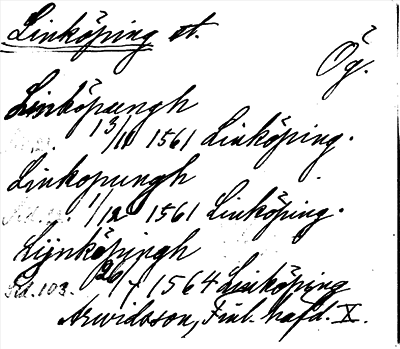 Linköping st.
Ög.
Linköpungh
13/11 1561 Linköping.
Linkopungh
1/12 1561 Linköping.
Lijnköpijngh
20/7 1564 Linköping
Sid. 103.
Arwidsson, Finl. häfd. X.